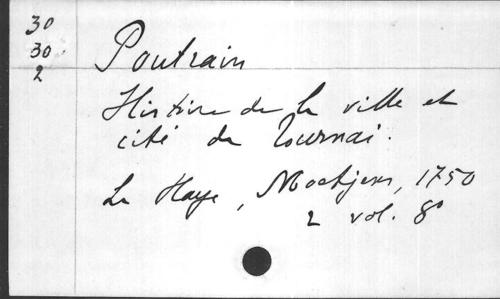 30
30.
2
Poutrain
Histoire de la ville et
cité de Tournai.
La Haye, Moetjens, 1750
2 vol. 8°